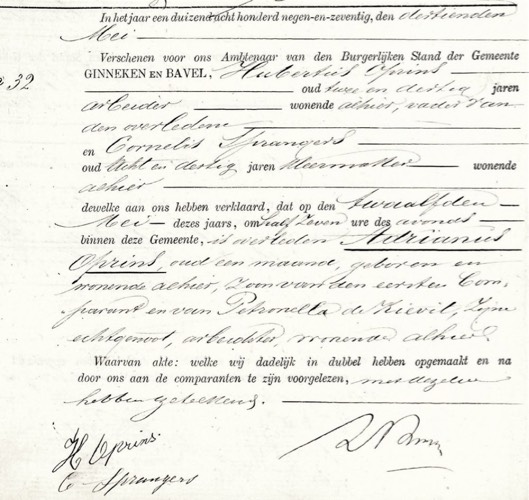 In het jaar een duizend acht honderd negen-en-zeventig, den dertienden
Mei
Verschenen voor ons Ambtenaar van den Burgerlijken Stand der Gemeente
GINNEKEN EN BAVEL, Hubertus Oprins
oud twee en dertig jaren
arbeider wonende alhier, vader van
den overledene
en Cornelis Sprangers
oud acht en dertig jaren kleermaker wonende
alhier
dewelke aan ons hebben verklaard, dat op den twaalfden
Mei dezes jaars, om half zeven ure des avonds
binnen deze Gemeente, is overleden Adrianus
Oprins, oud een maand, geboren en
wonende alhier, zoon van den eersten Com-
parant en van Petronella de Kievit, zijne
echtgenoot, arbeidster, wonende alhier
Waarvan akte: welke wij dadelijk in dubbel hebben opgemaakt en na
door ons aan de comparanten te zijn voorgelezen, met dezelve
hebben geteekend.
H Oprins
C Sprangers
32